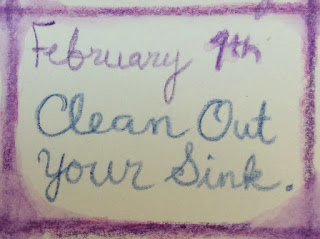 February 9th
Clean Out
Your Sink.